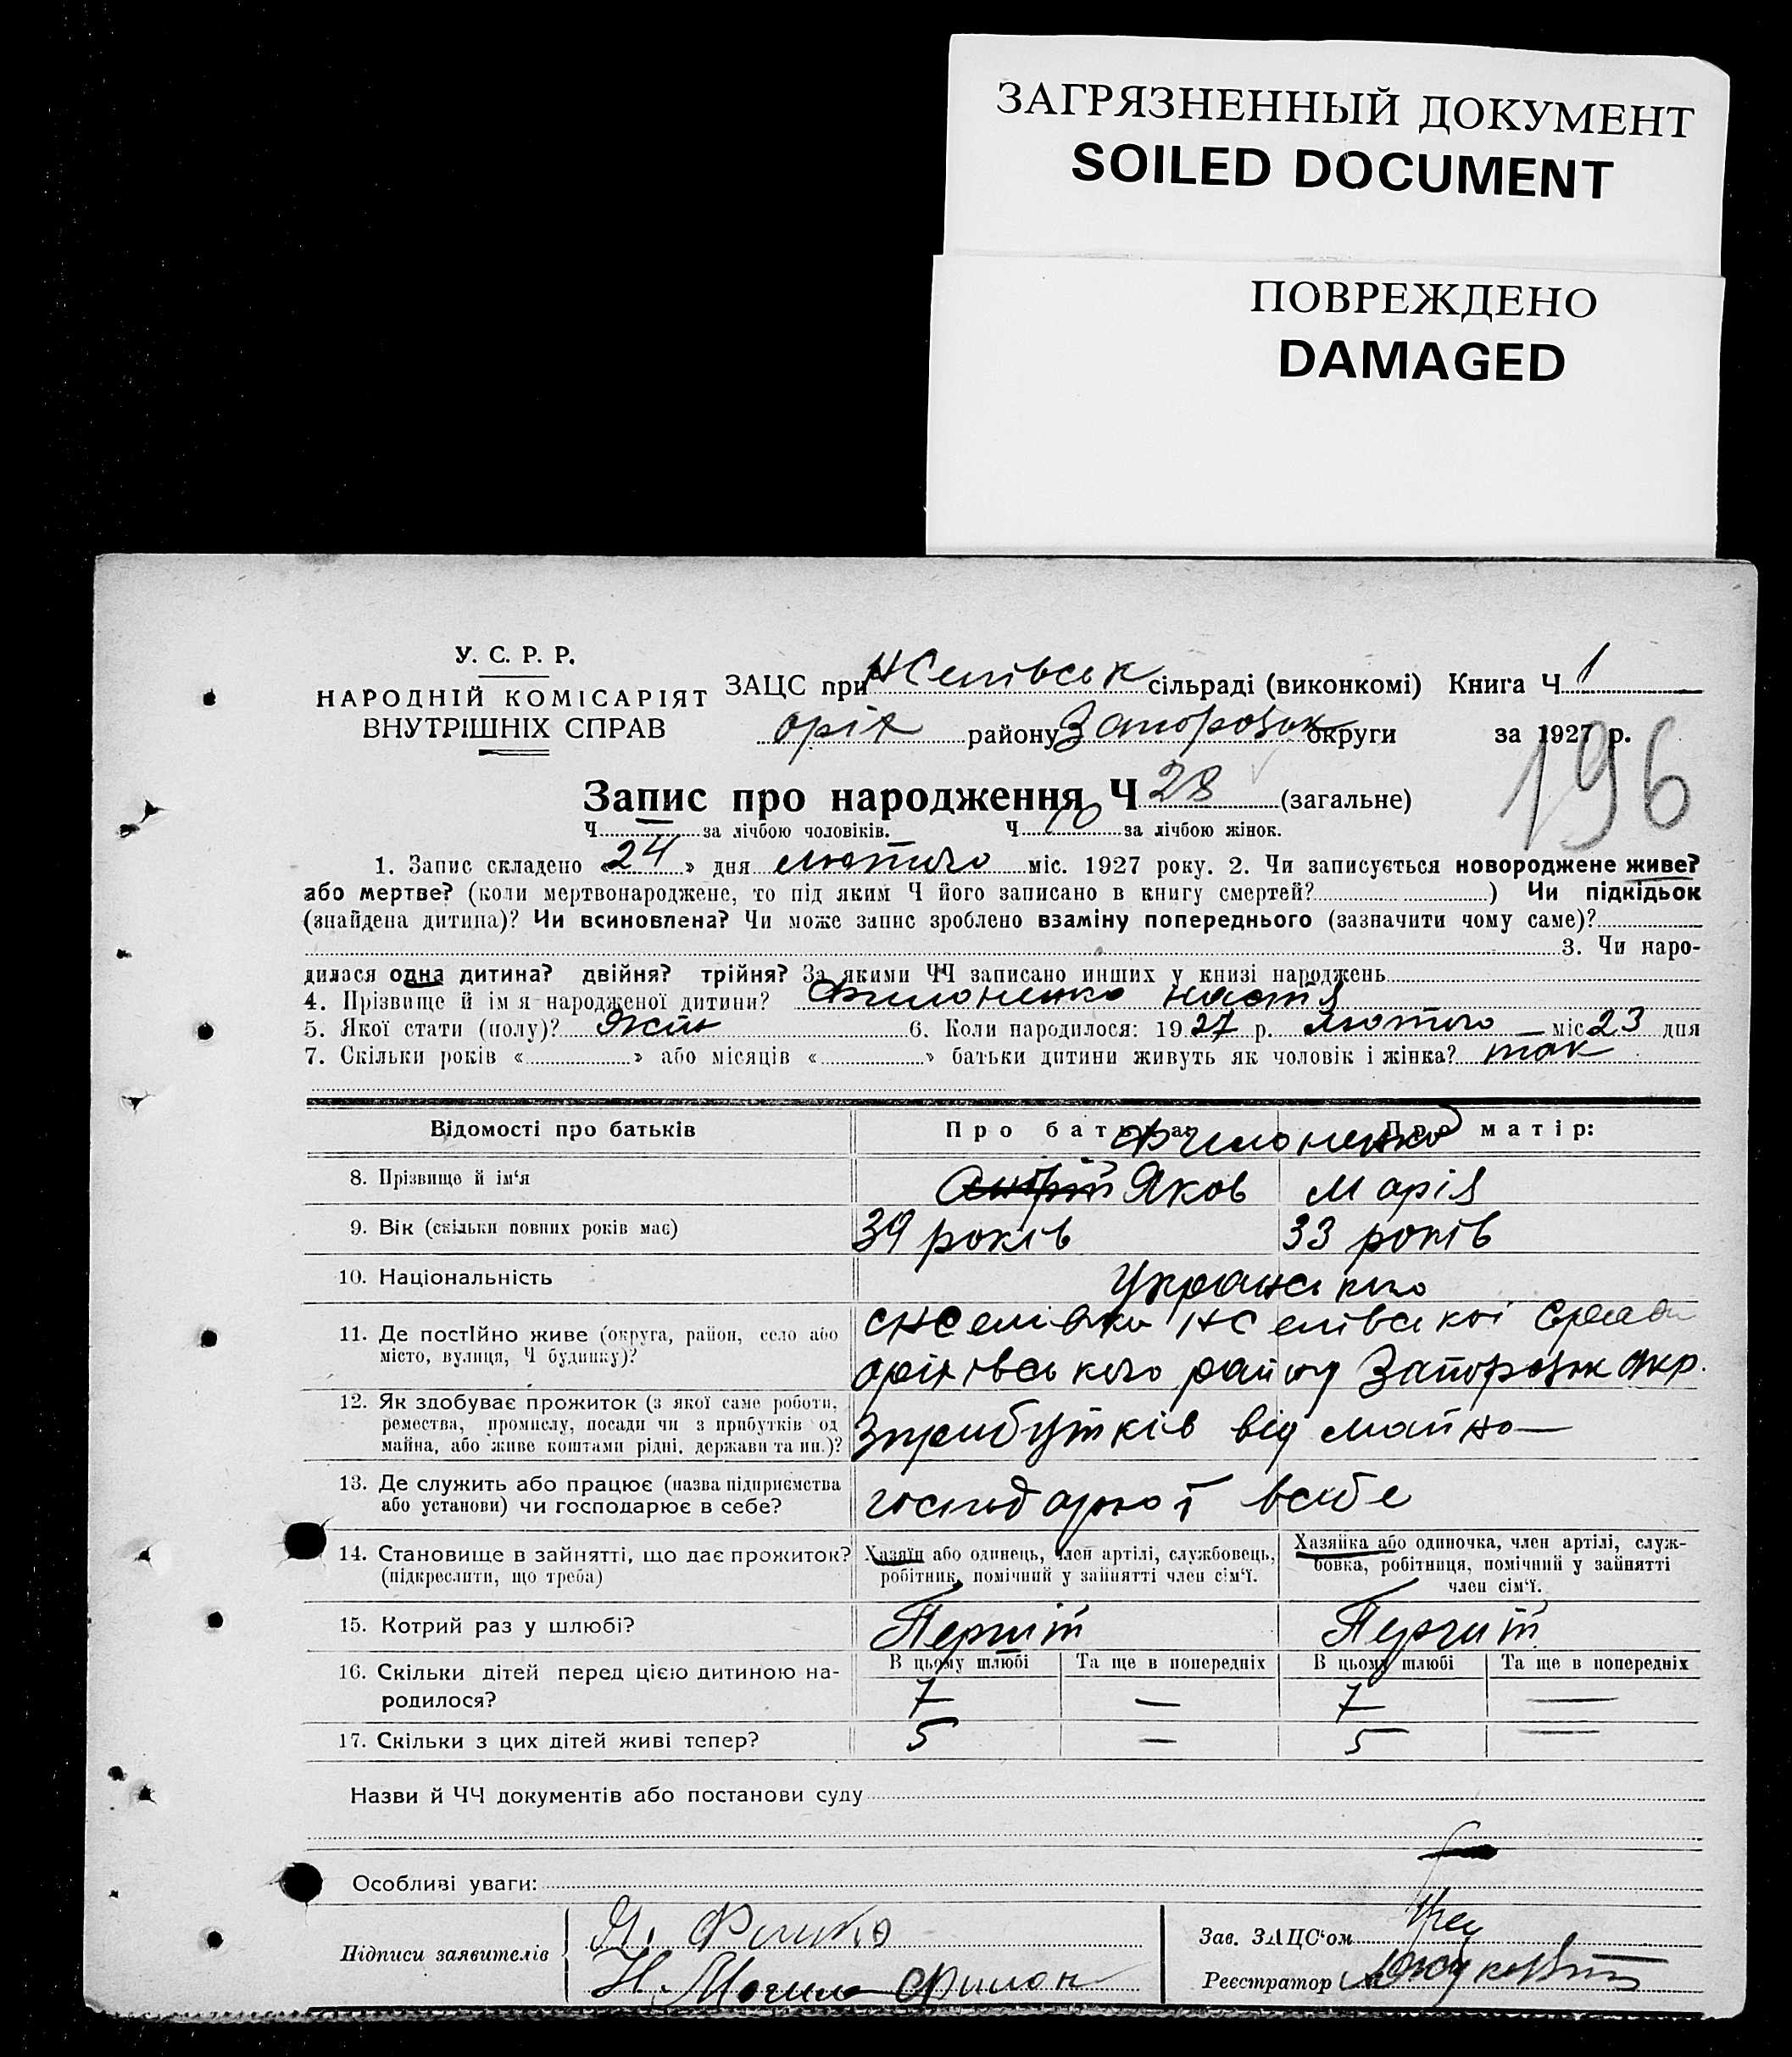 ЗАГРЯЗНЕННЫЙ ДОКУМЕНТ
SOILED DOCUMENT
ПОВРЕЖДЕНО
DAMAGED
У. С. Р. Р.
НАРОДНІЙ КОМІСАРІЯТ
ВНУТРІШНІХ СПРАВ
ЗАЦС при сільраді (виконкомі) Книга Ч. 1
оріх району Запорозьк округи за 1927 р.
196
Запис про народження Ч 28 (загальне)
Ч. за лічбою чоловіків. Ч. 10 за лічбою жінок.
1. Запис складено «24» дня лютого міс. 1927 року. 2. Чи записується новороджене живе?
або мертве? (коли мертвонароджене, то під яким Ч його записано в книгу смертей? ) Чи підкідьок
(знайдена дитина)? Чи всиновлена? Чи може запис зроблено взаміну попереднього (зазначити чому саме)?
3. Чи наро-
дилася одна дитина? двійня? трійня? За якими ЧЧ записано инших у книзі народжень
4. Прізвище й ім'я народженої дитини? Филоненко Настя
5. Якої стати (полу)? Жін 6. Коли народилося: 1927 р. лютого міс 23 дня
7. Скільки років « » або місяців « » батьки дитини живуть як чоловік і жінка? так
Відомості про батьків Про батька: Про матір:
Филоненко
8. Прізвище й ім'я Яков Марія
9. Вік (скільки повних років має) 39 років 33 років
10. Національність Українського
11. Де постійно живе (округа, район, село або
місто, вулиця, Ч будинку)?
оріхівського району Запорозьк окр.
12. Як здобуває прожиток (з якої саме роботи,
ремества, промислу, посади чи з прибутків од
майна, або живе коштами рідні, держави та ин.)?
Зприбутків від майна
13. Де служить або працює (назва підприємства
або установи) чи господарює в себе?
всебе
14. Становище в зайнятті, що дає прожиток?
(підкреслити, що треба)
Хазяїн або одинець, член артілі, службовець,
робітник, помічний у зайнятті член сім'ї.
Хазяйка або одиночка, член артілі, служ-
бовка, робітниця, помічний у зайнятті
член сім'ї.
15. Котрий раз у шлюбі? Перший Перший
16. Скільки дітей перед цією дитиною на-
родилося?
В цьому шлюбі Та ще в попередніх В цьому шлюбі Та ще в попередніх
7 — 7 —
17. Скільки з цих дітей живі тепер? 5 — 5 —
Назви й ЧЧ документів або постанови суду
Особливі уваги:
Підписи заявителів
Зав. ЗАЦС'ом
Реєстратор